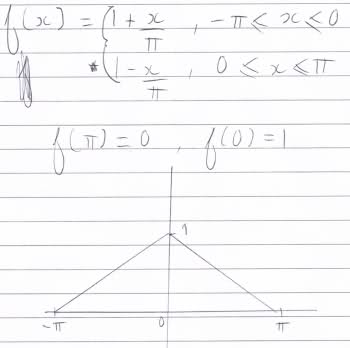 f(x) = { 1 + x/π , -π < x < 0
1 - x/π , 0 ≤ x ≤ π
f(π) = 0 , f(0) = 1
1
-π 0 π